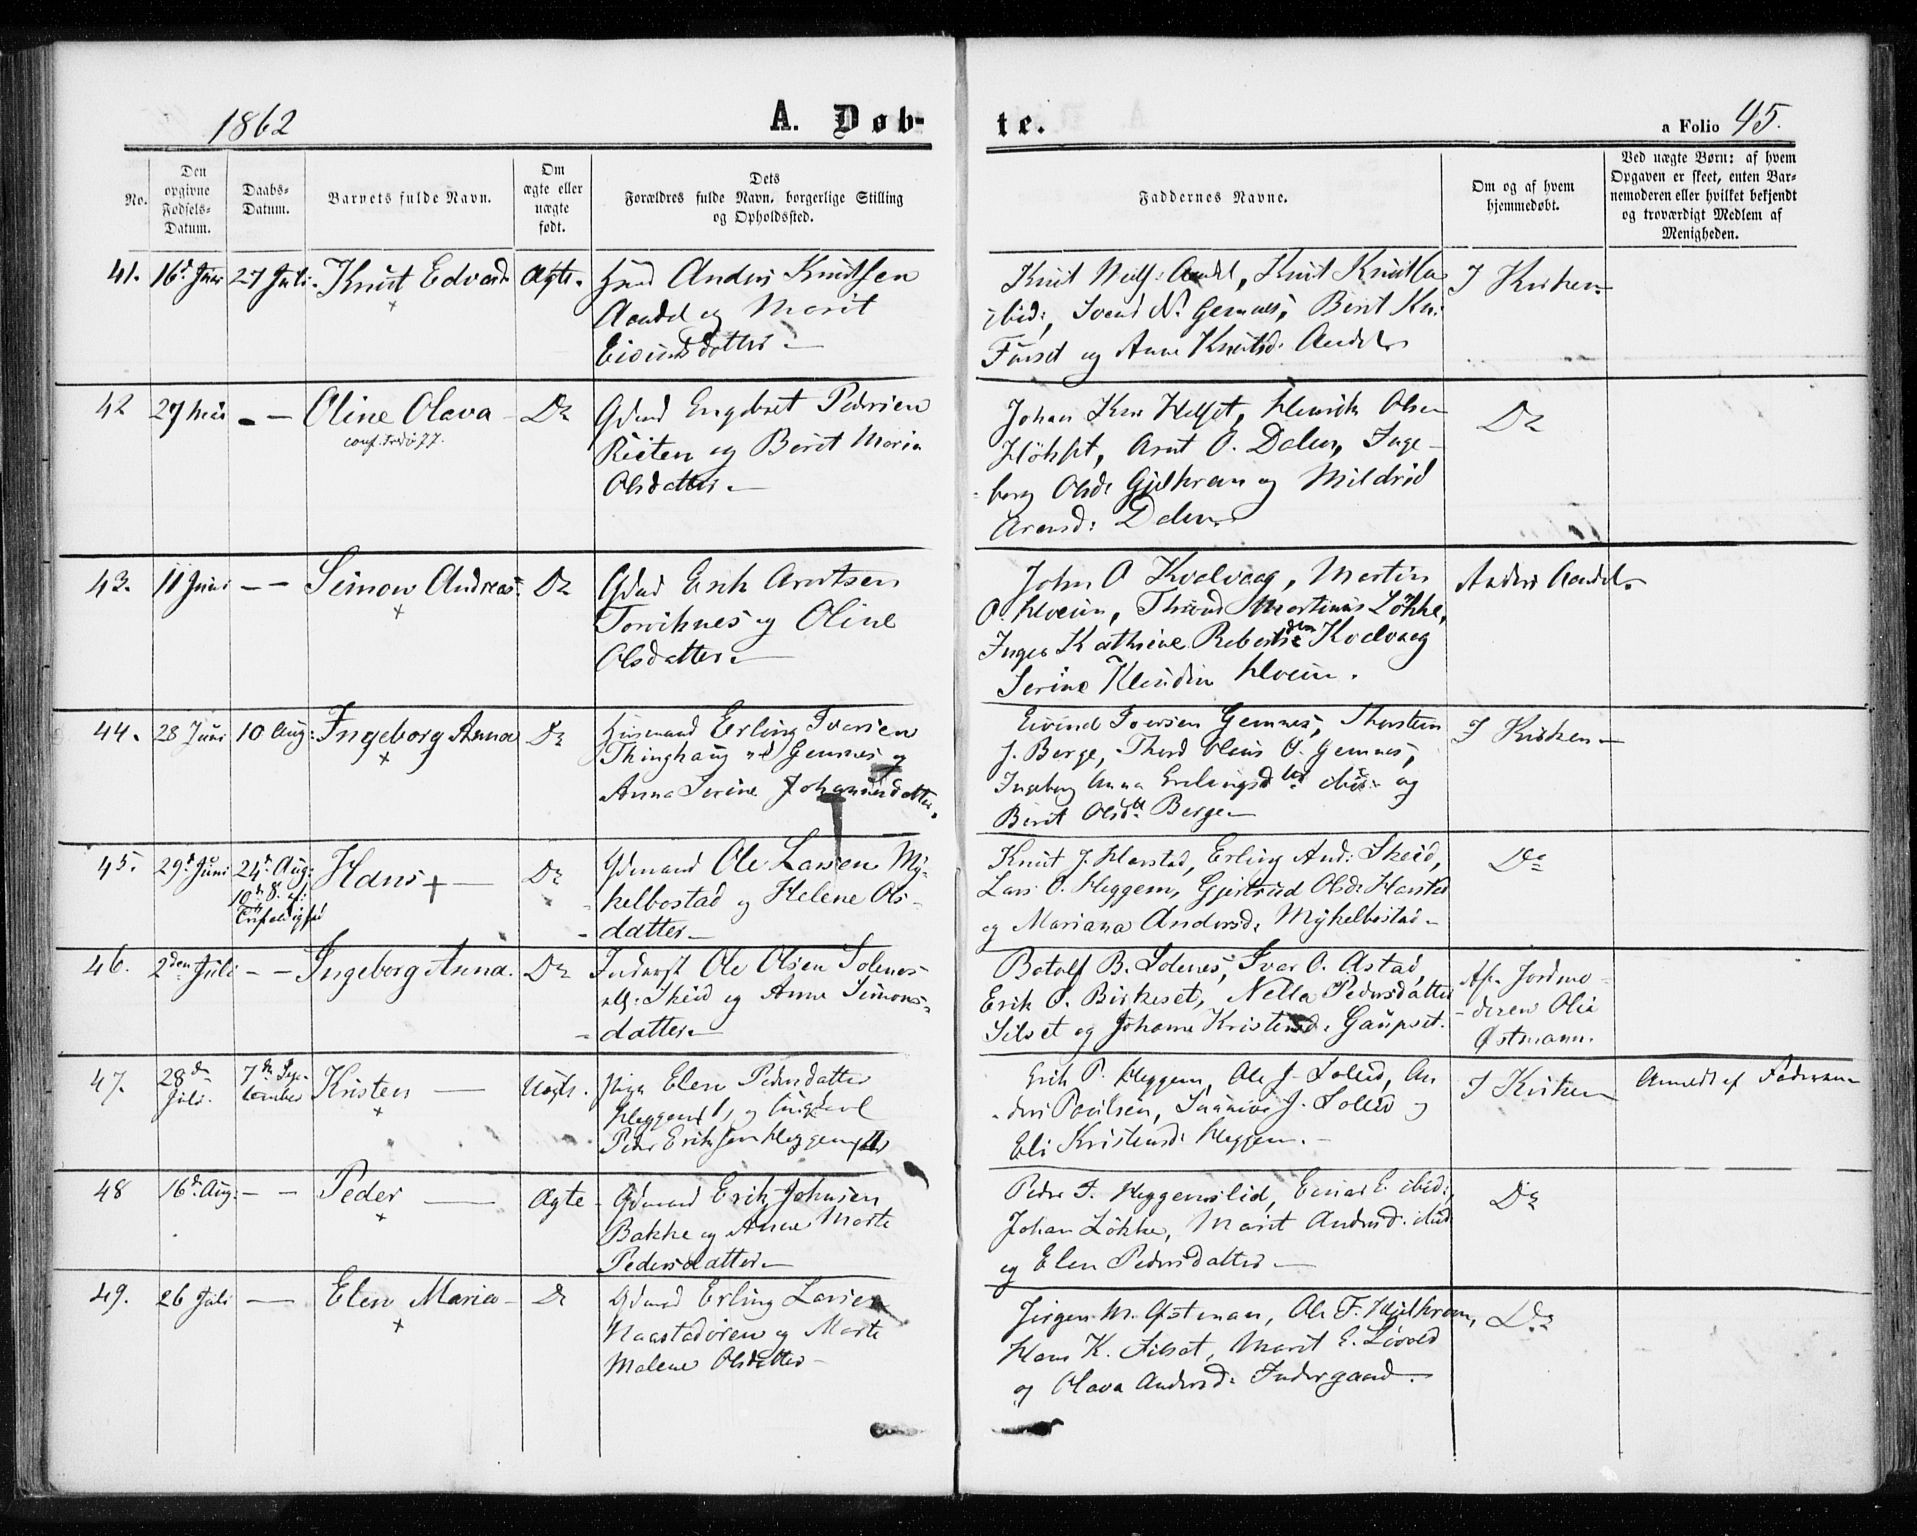 1862 A. Døb- te. a Folio 45.
No.
Den opgivne Fødsels-Datum.
Daabs-Datum.
Barnets fulde Navn.
Om ægte eller uægte født.
Dets Forældres fulde Navn, borgerlige Stilling og Opholdssted.
Faddernes Navne.
Om og af hvem hjemmedøbt.
Ved uægte Børn: af hvem Opgaven er skeet, enten Barnemoderen eller hvilket bekjendt og troværdigt Medlem af Menigheden.
41. 16d Juni 27 Juli Knut Edvard Ægte Anders Knutsen
Aandal og Marit
Eivindsdatter
Knut Aandal, Knut Knuts
ibid:, Svend N. Gemnes, Berit Kn:
Furset og Anne Knutsd: Aandal
I Kirken
42 27 - - Oline Olava Do Gdmd Engebret Pedersen
conf.
og Berit Maria
Olsdatter
Johan Knu Helset, Henrik Olsen
Arnt O. Dalen, Inge-
borg Olsd: og Mildrid
Arensd: Dalen
Do
43. 11 Juni - - Simon Andreas Do Gdmd Erik Arntsen
Torviknes og Oline
Olsdatter
John O Kvalvaag, Martin
O. Thrond Martinus Løkke,
Inger Kathrine Kvalvaag
Serine
Anders Aandal
44. 28 Juni 10 Aug: Ingeborg Anna Do Husmand Erling Iversen
Thinghaug Gemnes og
Anna Serine Johannesdatter
Eivind Iversen Gemnes, Thorstein
J. Berge, Olaus O. Gemnes,
Ingeborg Anna Erlingsd ibid og
Berit Olsd Berge
I Kirken
45. 29d Juni 24d Aug: Hans + Do Gdmand Ole Larsen My-
kelbostad og Helene Ols-
datter
Knut J. Harstad, Erling And: Skeid,
Lars O. Heggem, Gjertrud Olsd: Harstad
og Mariana Andersd: Mykelbostad
Do
46. 2den Juli - - Ingeborg Anna. Do Inderst Ole Olsen Solenes
Skeid og Anne Simons-
datter
Botolf B. Solenes, Iver O. Astad,
Erik O. Birkeset, Nella Pedersdatter
Silset og Johanne Kristensd: Gaupset.
Af Jordmo-
deren
Østmann.
47. 28d Juli 7d September Kristen Uægte Pige Elen Pedersdatter
Heggem og Ungkarl
Peder Eriksen Heggem
Erik P. Heggem, Ole J. Sollid, An-
ders Poulsen, J. Sollid og
Eli Kristensd: Heggem.
I Kirken Anmeldt af Faderen
48 16d Aug: - - Peder Ægte Gdmand Erik Johnsen
Bakke og Anne Marte
Pedersdatter
Peder F. Heggemslid, Einar E. ibid:
Johan Løkke, Marit Andersd: ibid
og Elen Pedersdatter
Do
49. 26 Juli - Elen Maria Do Gdmd Erling Larsen
Naastadøren og Marte
Malene Olsdatter
Jørgen M. Østman, Ole F.
Hans K. Silset, Marit E.
og Olava Andersd: Indergaard
Do